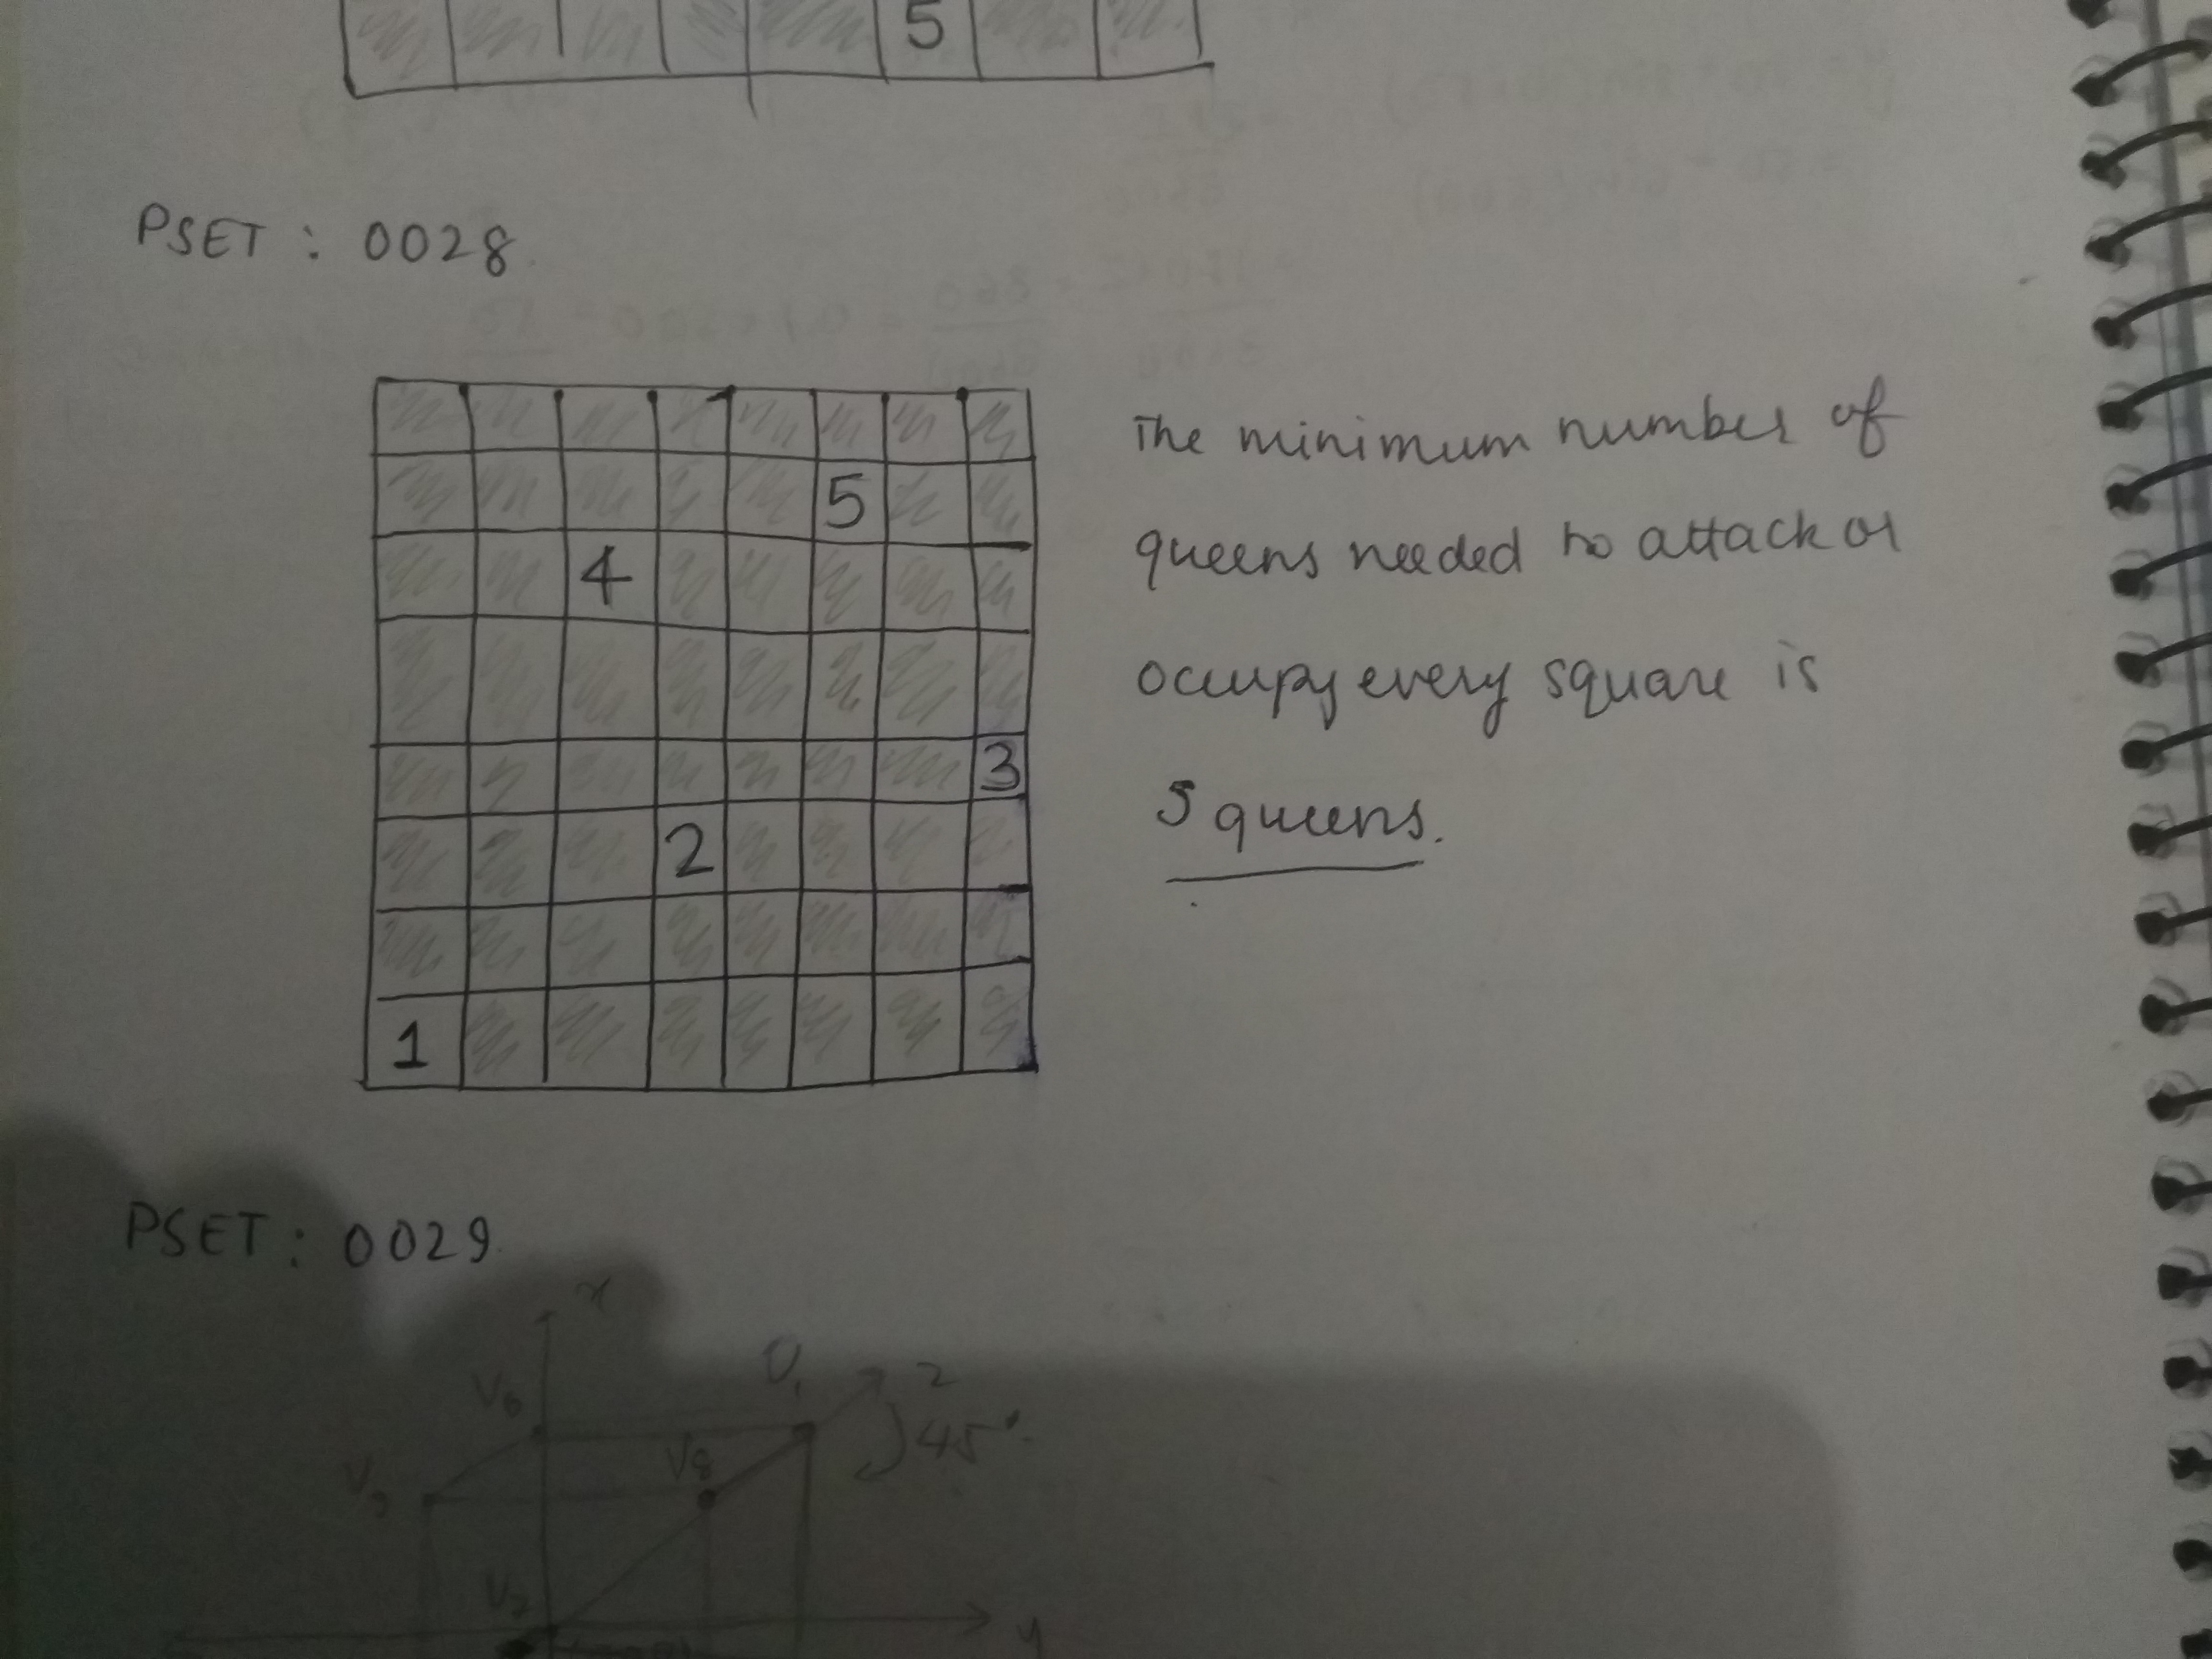 5
PSET : 0028.
The minimum number of
queens needed to attack or
occupy every square is
5 queens.
5
4
3
2
1
PSET : 0029.
x
V6
U1
2
45°
V8
V2
y